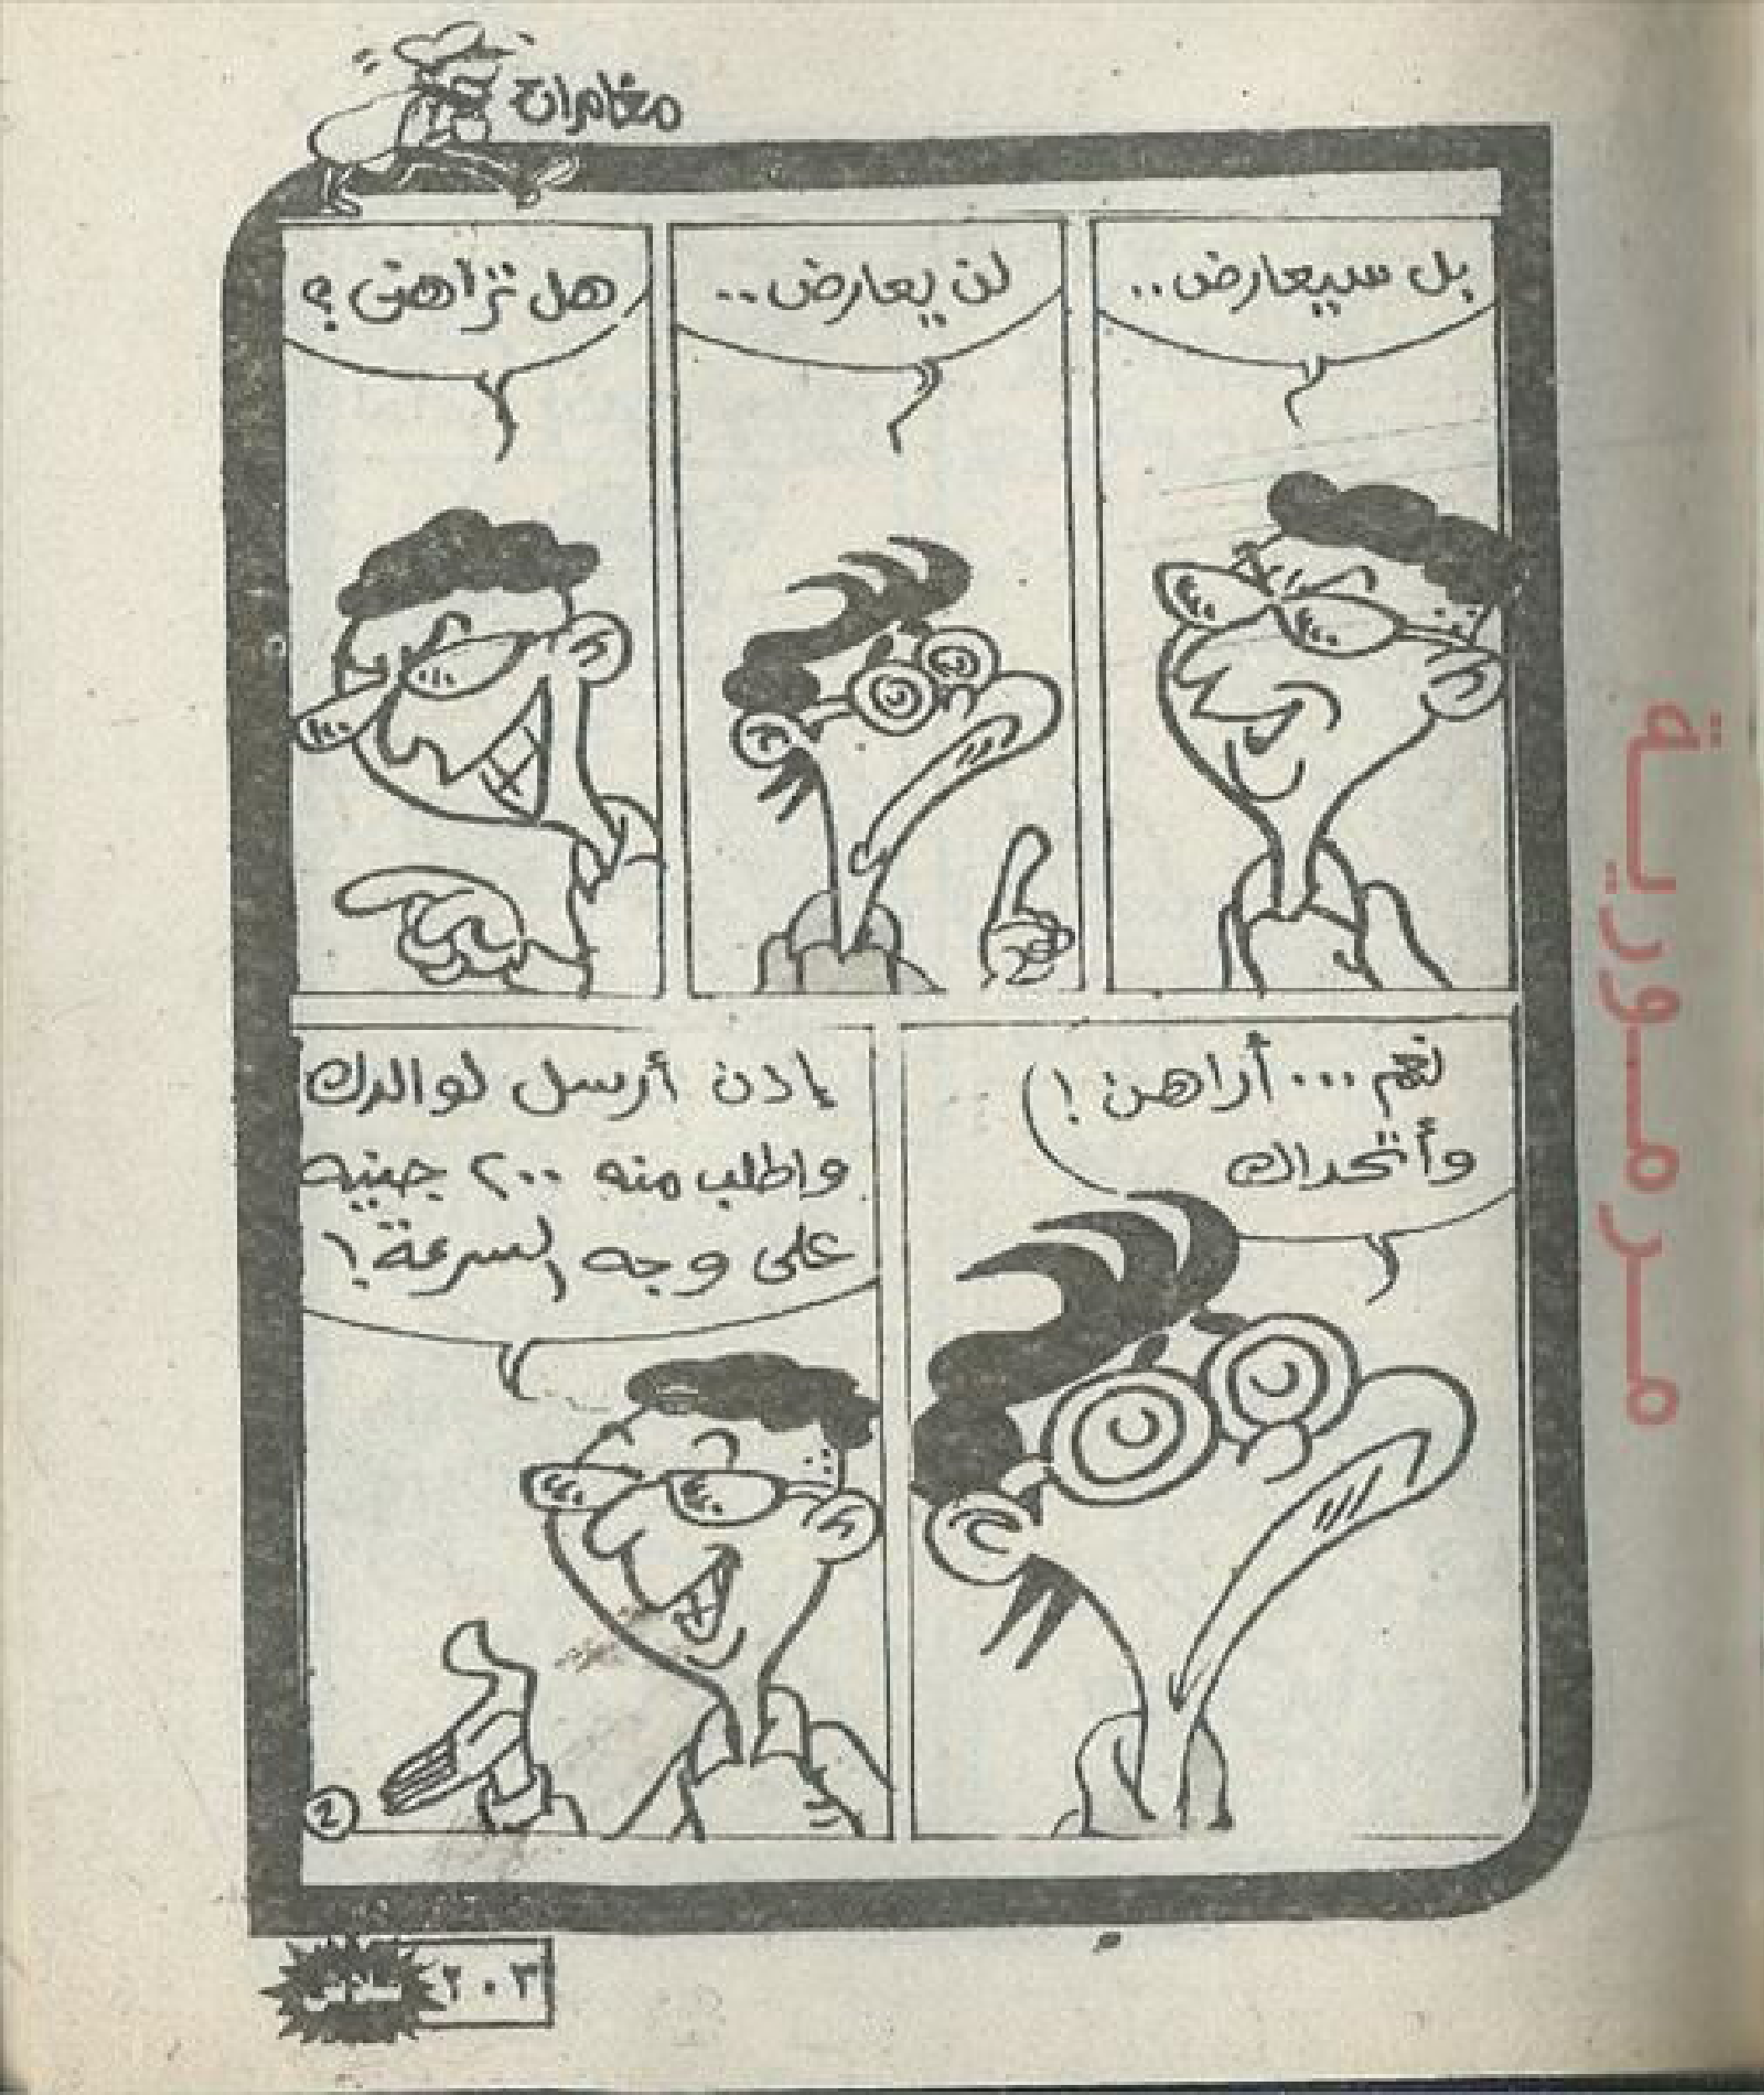 مغامرات
بل سيعارض..
لن يعارض..
هل تراهن؟
نعم... أراهن!
وأتحداك
إذن أرسل لوالدك
واطلب منه ٢٠٠ جنيه
على وجه السرعة!
2
٢٠٣
فلاش
مـرمـوريـة